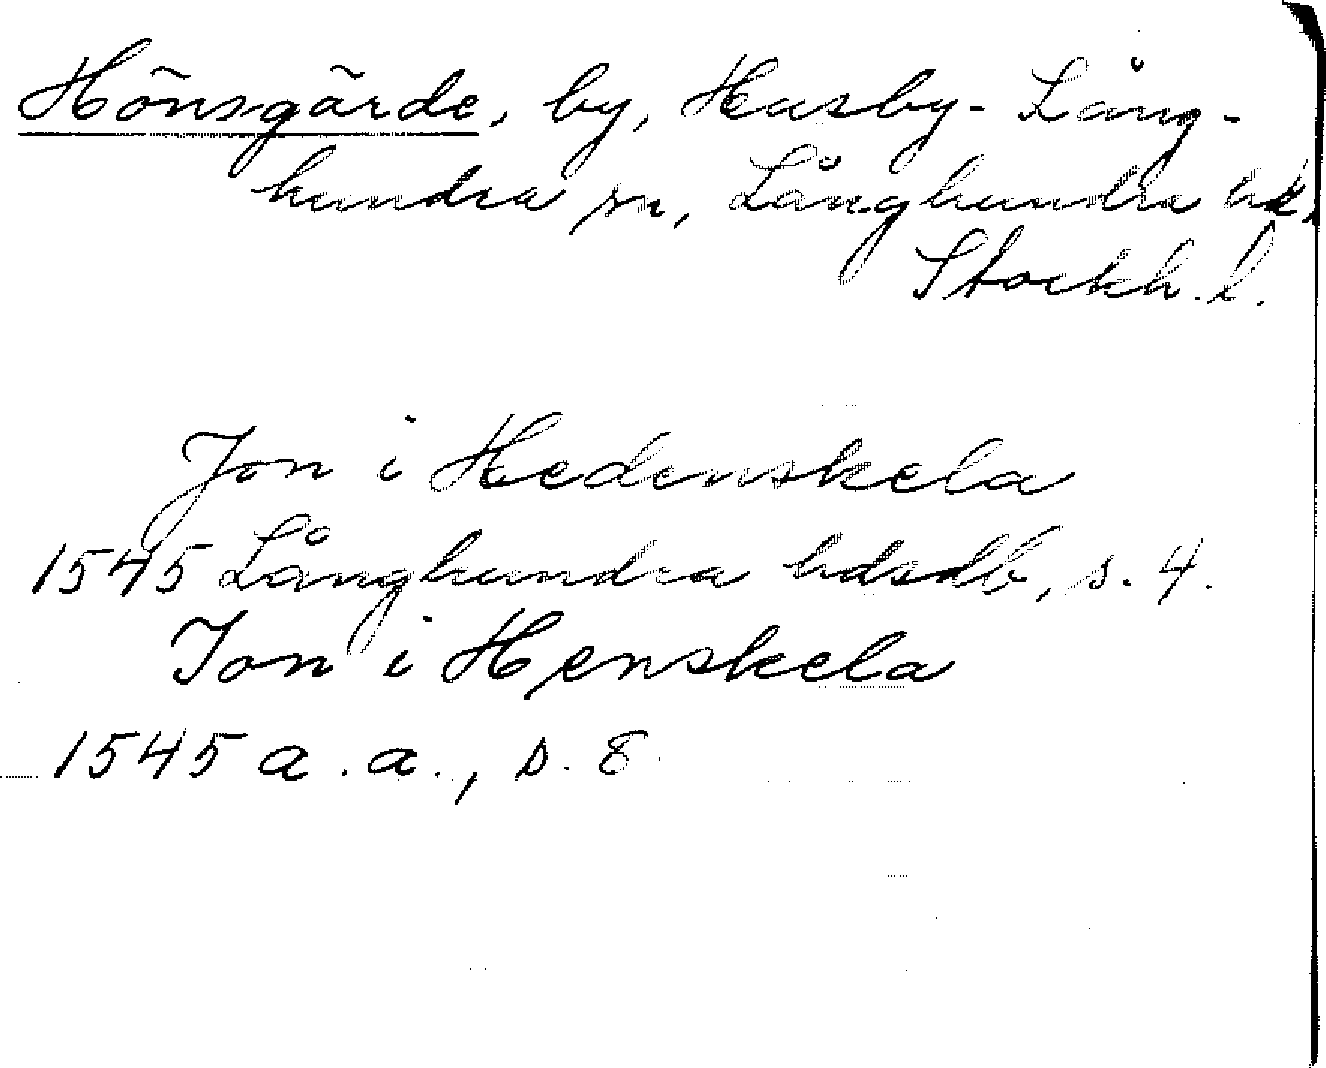 Hönsgärde, by, Husby-Lång-
hundra sn, Långhundra hd,
Stockh. l.
Jon i Hedenskela
1545 Långhundra hdsdb, s. 4.
Jon i Henskela
1545 a.a., s. 8.